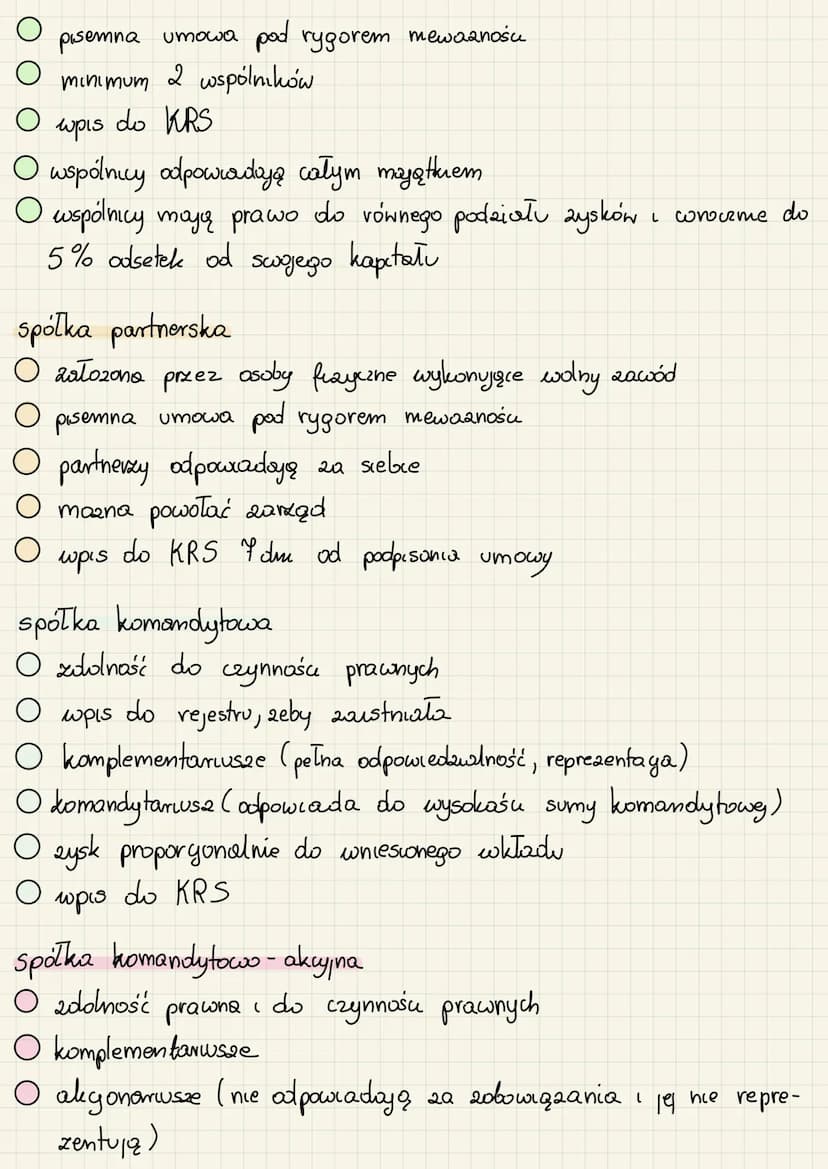 pisemna umowa pod rygorem nieważności
minimum 2 wspólników
wpis do KRS
wspólnicy odpowiadają całym majątkiem
wspólnicy mają prawo do równego podziału zysków i corocznie do
5% odsetek od swojego kapitału
spółka partnerska
założona przez osoby fizyczne wykonujące wolny zawód
pisemna umowa pod rygorem nieważności
partnerzy odpowiadają za siebie
można powołać zarząd
wpis do KRS 7 dni od podpisania umowy
spółka komandytowa
zdolność do czynności prawnych
wpis do rejestru, żeby zaistniała
komplementariusze (pełna odpowiedzialność, reprezentacja)
komandytariusz (odpowiada do wysokości sumy komandytowej)
zysk proporcjonalnie do wniesionego wkładu
wpis do KRS
spółka komandytowo-akcyjna
zdolność prawna i do czynności prawnych
komplementariusze
akcjonariusze (nie odpowiadają za zobowiązania i jej nie repre-
zentują)